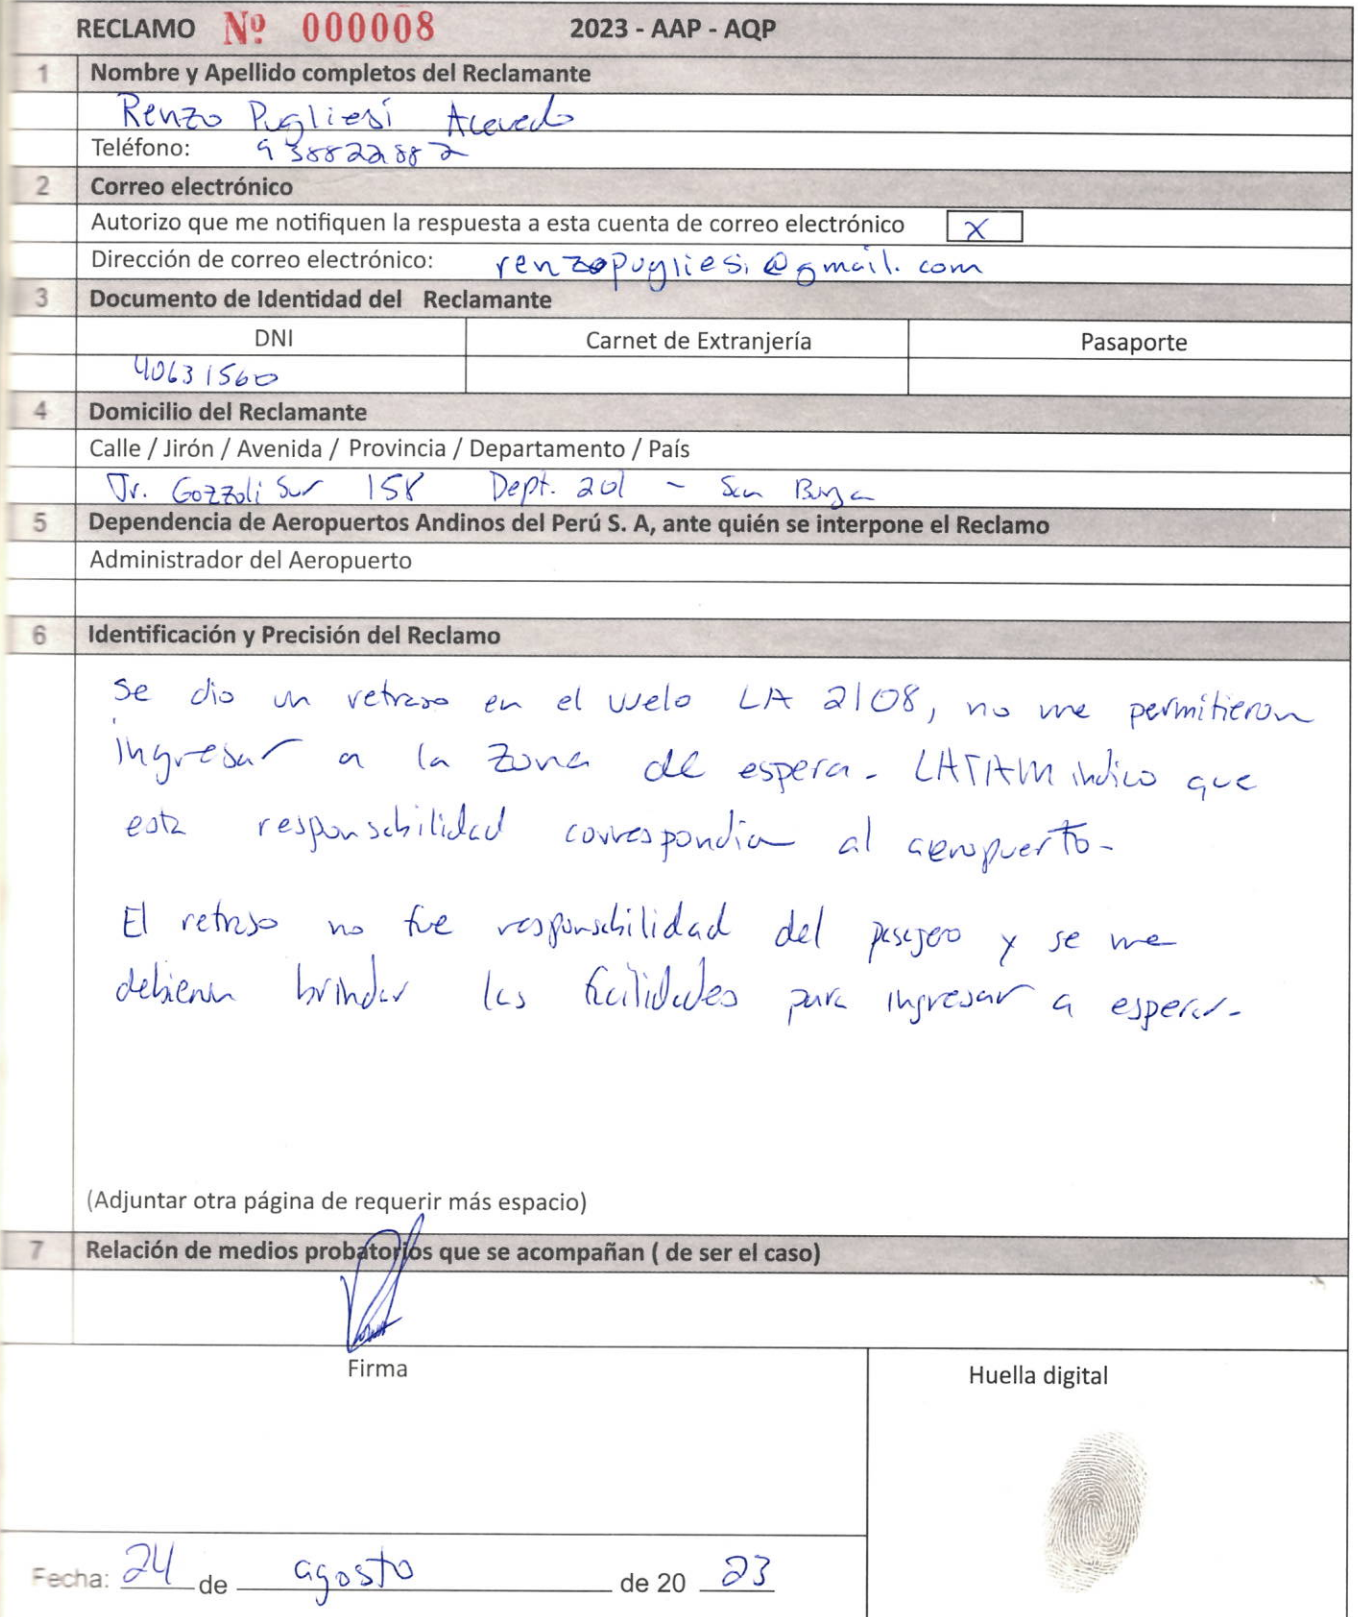 RECLAMO Nº 000008 2023 - AAP - AQP
1 Nombre y Apellido completos del Reclamante
Renzo Pugliesi Acevedo
Teléfono: 938822882
2 Correo electrónico
Autorizo que me notifiquen la respuesta a esta cuenta de correo electrónico X
Dirección de correo electrónico: renzopugliesi@gmail.com
3 Documento de Identidad del Reclamante
DNI Carnet de Extranjería Pasaporte
40631560
4 Domicilio del Reclamante
Calle / Jirón / Avenida / Provincia / Departamento / País
Jr. Gozzoli Sur 158 Dept. 201 - San Borja
5 Dependencia de Aeropuertos Andinos del Perú S. A, ante quién se interpone el Reclamo
Administrador del Aeropuerto
6 Identificación y Precisión del Reclamo
Se dio un retraso en el vuelo LA 2108, no me permitieron
ingresar a la zona de espera. LATAM indico que
esta responsabilidad correspondia al aeropuerto.
El retraso no fue responsabilidad del pasajero y se me
debieron brindar las facilidades para ingresar a esperar.
(Adjuntar otra página de requerir más espacio)
7 Relación de medios probatorios que se acompañan ( de ser el caso)
Firma
Huella digital
Fecha: 24 de agosto de 20 23